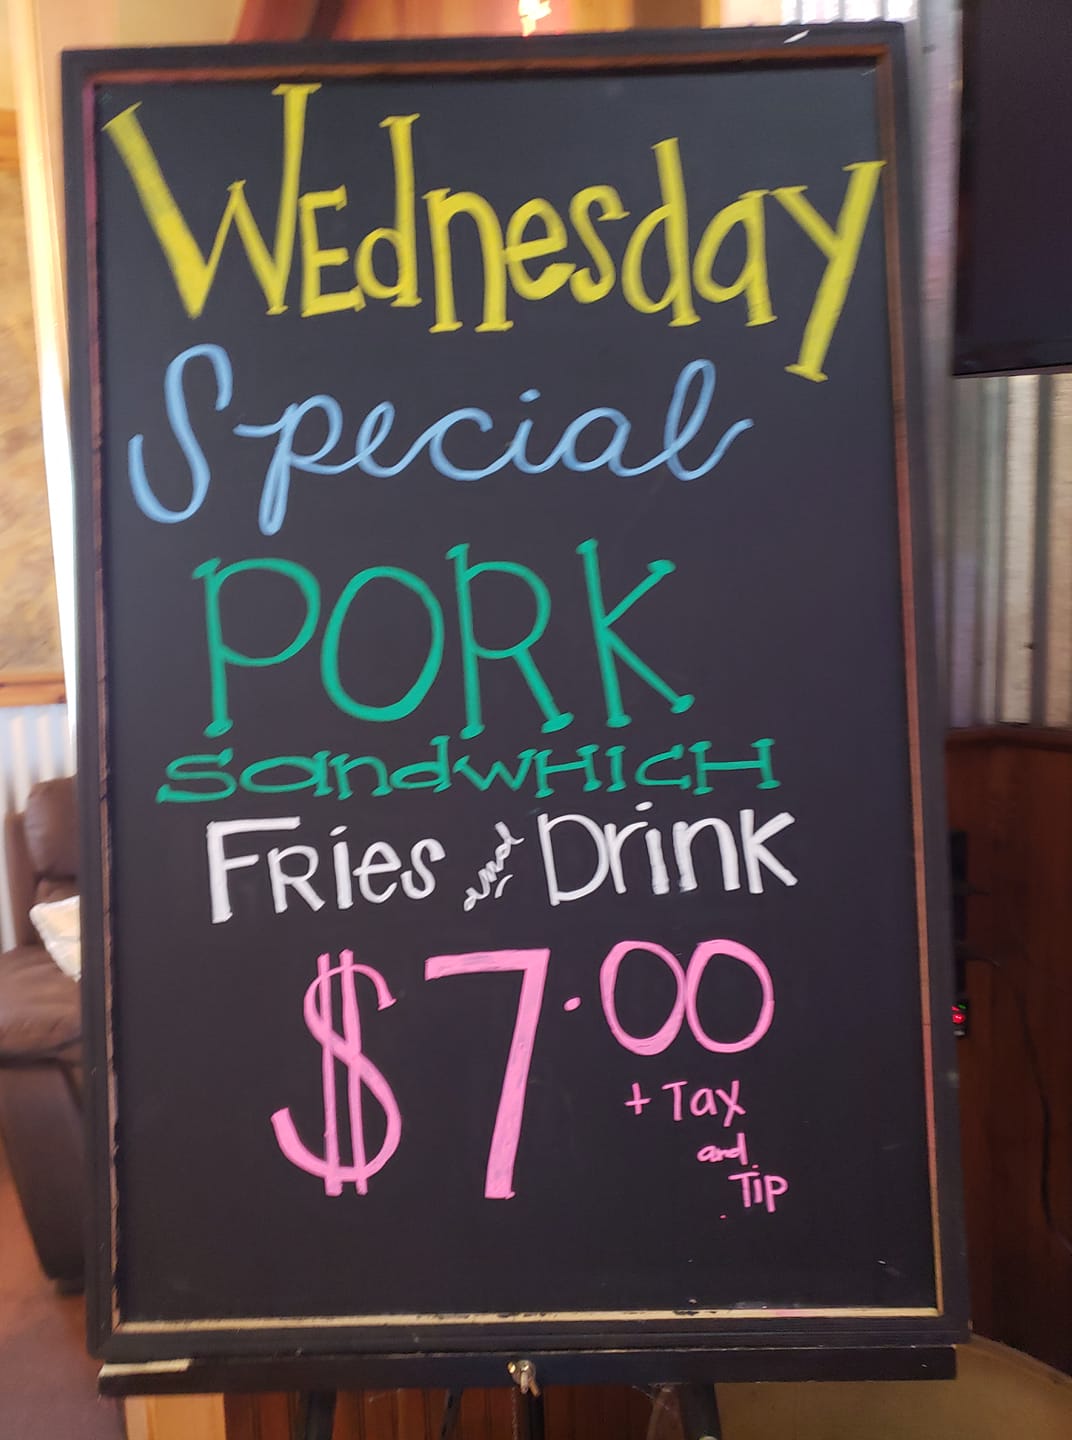 WEdnesday
Special
PORK
SandwHICH
FRies and Drink
$7.00
+ Tax
and
Tip